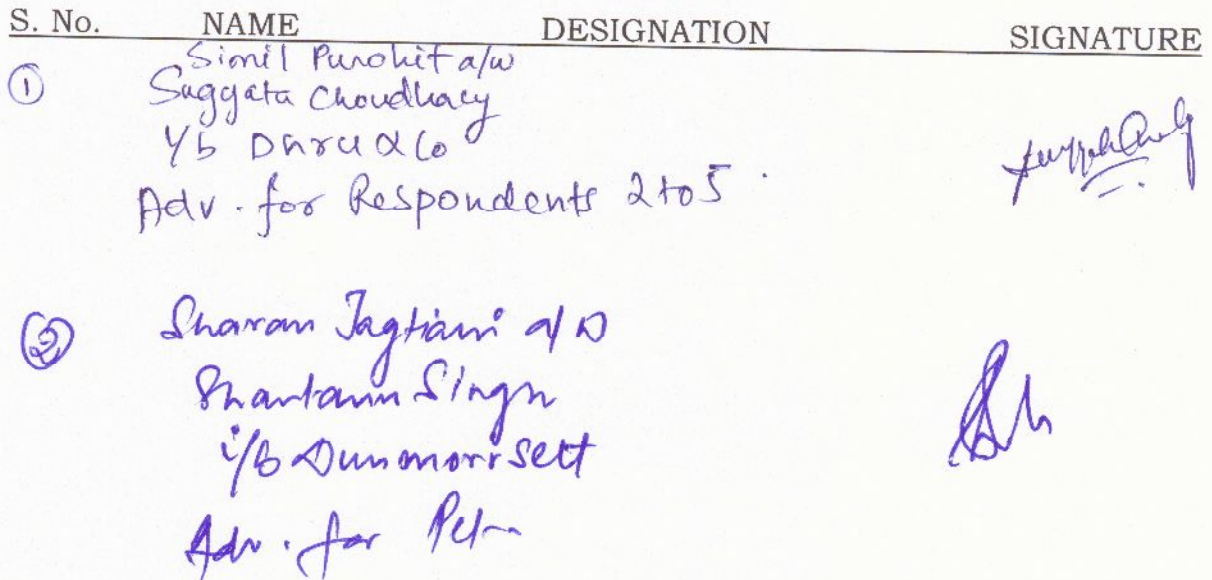 S. No. NAME DESIGNATION SIGNATURE
① Simil Purohit a/w
Suggata Choudhary
i/b Dhru & Co
Adv. for Respondents 2 to 5.
② Sharan Jagtiani a/w
Shantanu Singh
i/b Dunmorr Sett
Adv. for Petr